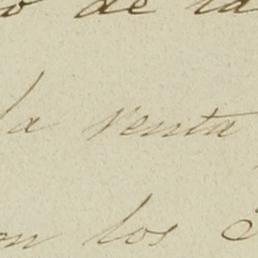 o de la
la venta
on los